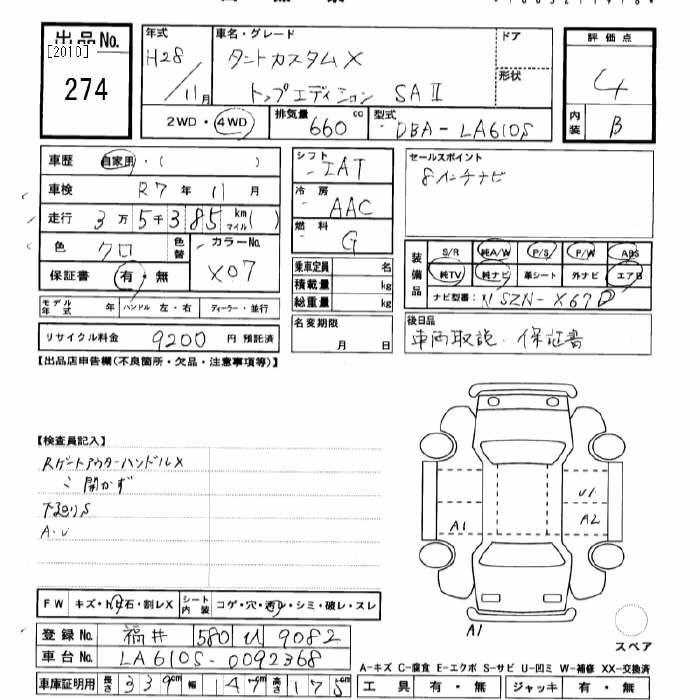 出品No.
[2010]
274
年式
H28/11月
車名・グレード
タントカスタムX
トップエディション SAⅡ
ドア
形状
評価点
4
内装
B
2WD・4WD
排気量 660 cc
型式 DBA-LA610S
車歴 自家用・( )
車検 R7年 11月
走行 3万5千385 km マイル( )
色 クロ 色替
カラーNo. X07
保証書 有・無
シフト IAT
冷房 AAC
燃料 G
乗車定員 名
積載量 kg
総重量 kg
名変期限 月 日
セールスポイント
8インチナビ
装備品
S/R 純A/W P/S P/W ABS
純TV 純ナビ 革シート 外ナビ エアB
ナビ型番: NSZN-X67D
モデル年式 年 ハンドル 左・右 ディーラー・並行
リサイクル料金 9200 円 預託済
後日品
車両取説・保証書
【出品店申告欄(不良箇所・欠品・注意事項等)】
【検査員記入】
RゲートアウターハンドルX
開かず
下回りS
A・U
U1
A1
A2
A1
スペア
FW キズ・トビ石・割レX
シート内装 コゲ・穴・汚レ・シミ・破レ・スレ
登録No. 福井 580 い 9082
車台No. LA610S-0092368
車庫証明用 長さ 339cm 幅 147cm 高さ 175cm
A-キズ C-腐食 E-エクボ S-サビ U-凹ミ W-補修 XX-交換済
工具 有・無 ジャッキ 有・無